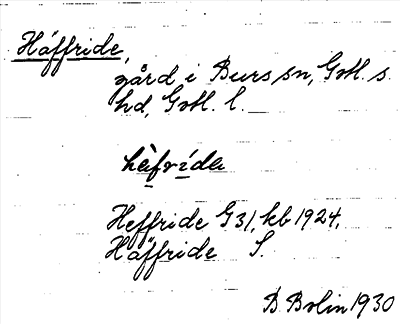 Häffride,
gård i Burs sn, Gotl. s.
hd, Gotl. l.
hàfrída
Heffride G 31, kb 1924,
Häffride S.
B. Bolin 1930